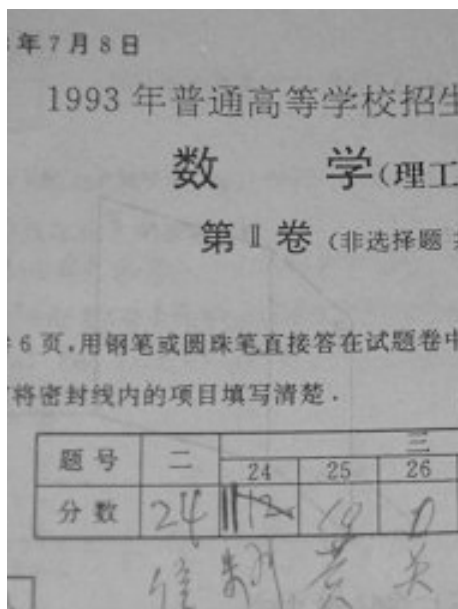 年7月8日
1993年普通高等学校招生
数 学(理工
第Ⅱ卷(非选择题
6页,用钢笔或圆珠笔直接答在试题卷中
将密封线内的项目填写清楚.
三
题号 二 24 25 26
分数 24 12